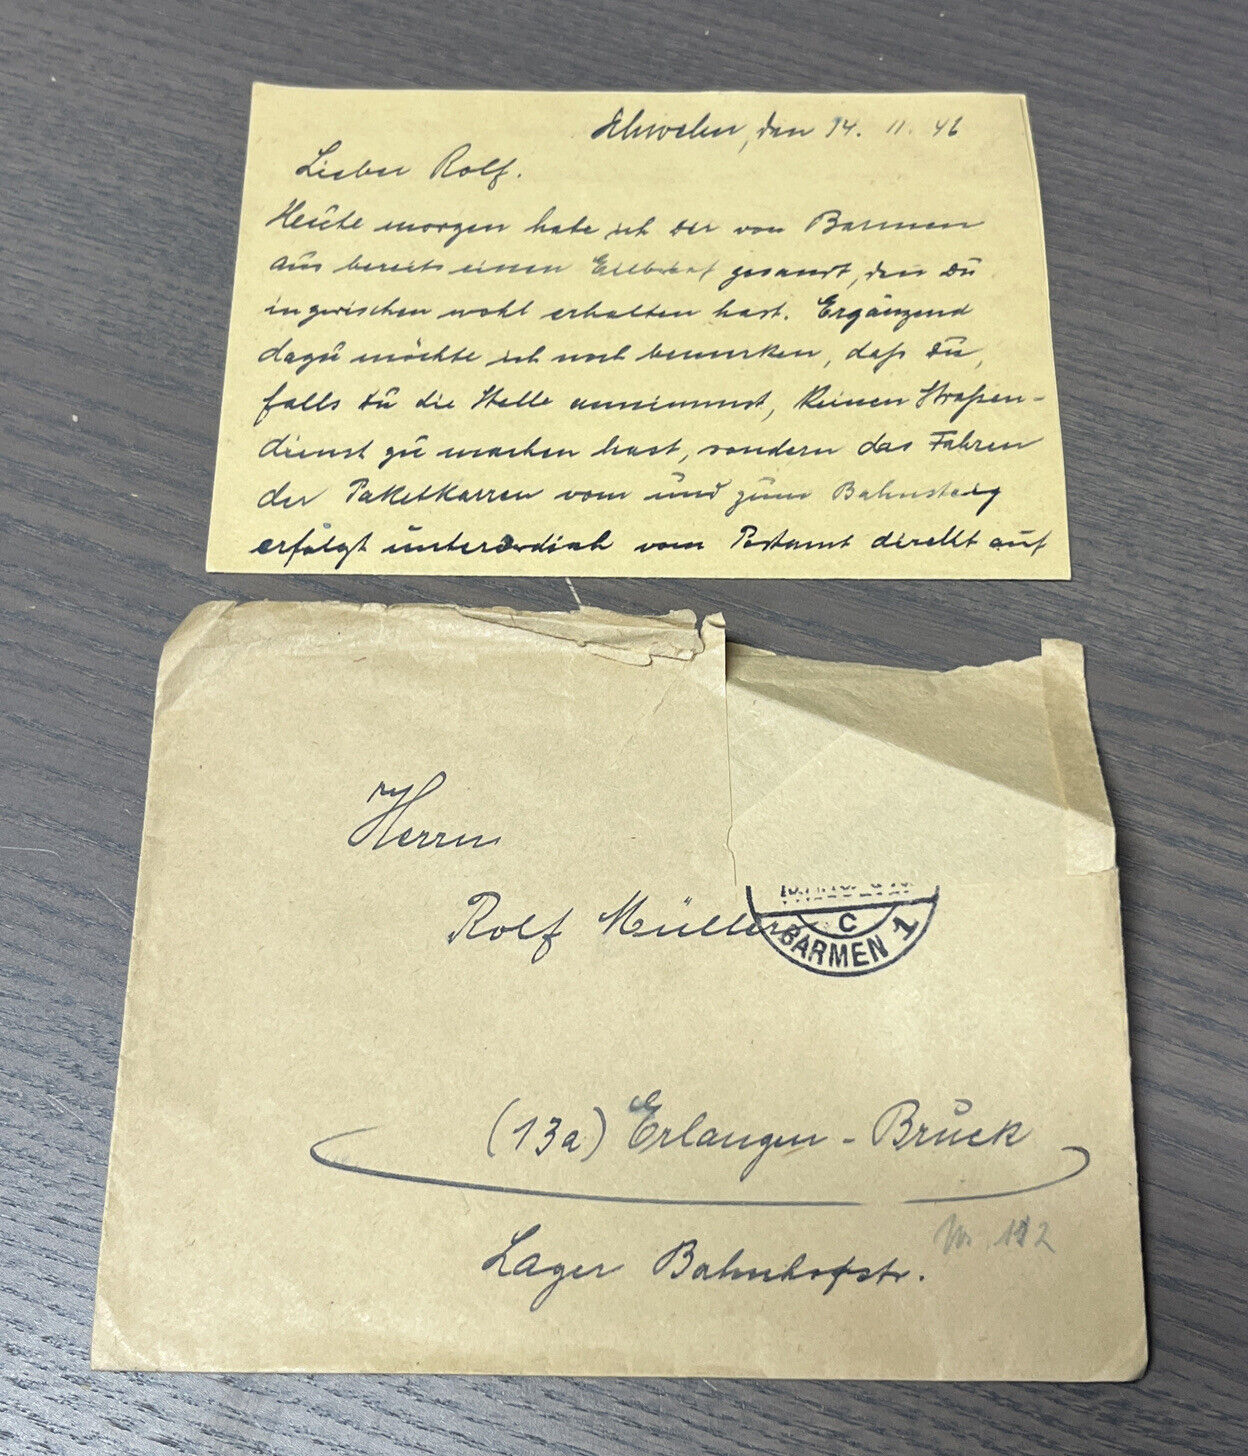 Schwelm, den 14. 11. 46
Lieber Rolf.
Heute morgen habe ich Dir von Barmen
aus bereits einen Eilbrief gesandt, den Du
inzwischen wohl erhalten hast. Ergänzend
dazu möchte ich noch bemerken, daß Du,
falls Du die Stelle annimmst, keinen Straßen-
dienst zu machen hast, sondern das Fahren
der Paketkarren vom und zum Bahnsteig
erfolgt unterirdisch vom Postamt direkt auf
Herrn
Rolf Müller
c
BARMEN 1
(13a) Erlangen-Bruck
Nr. 112
Lager Bahnhofstr.